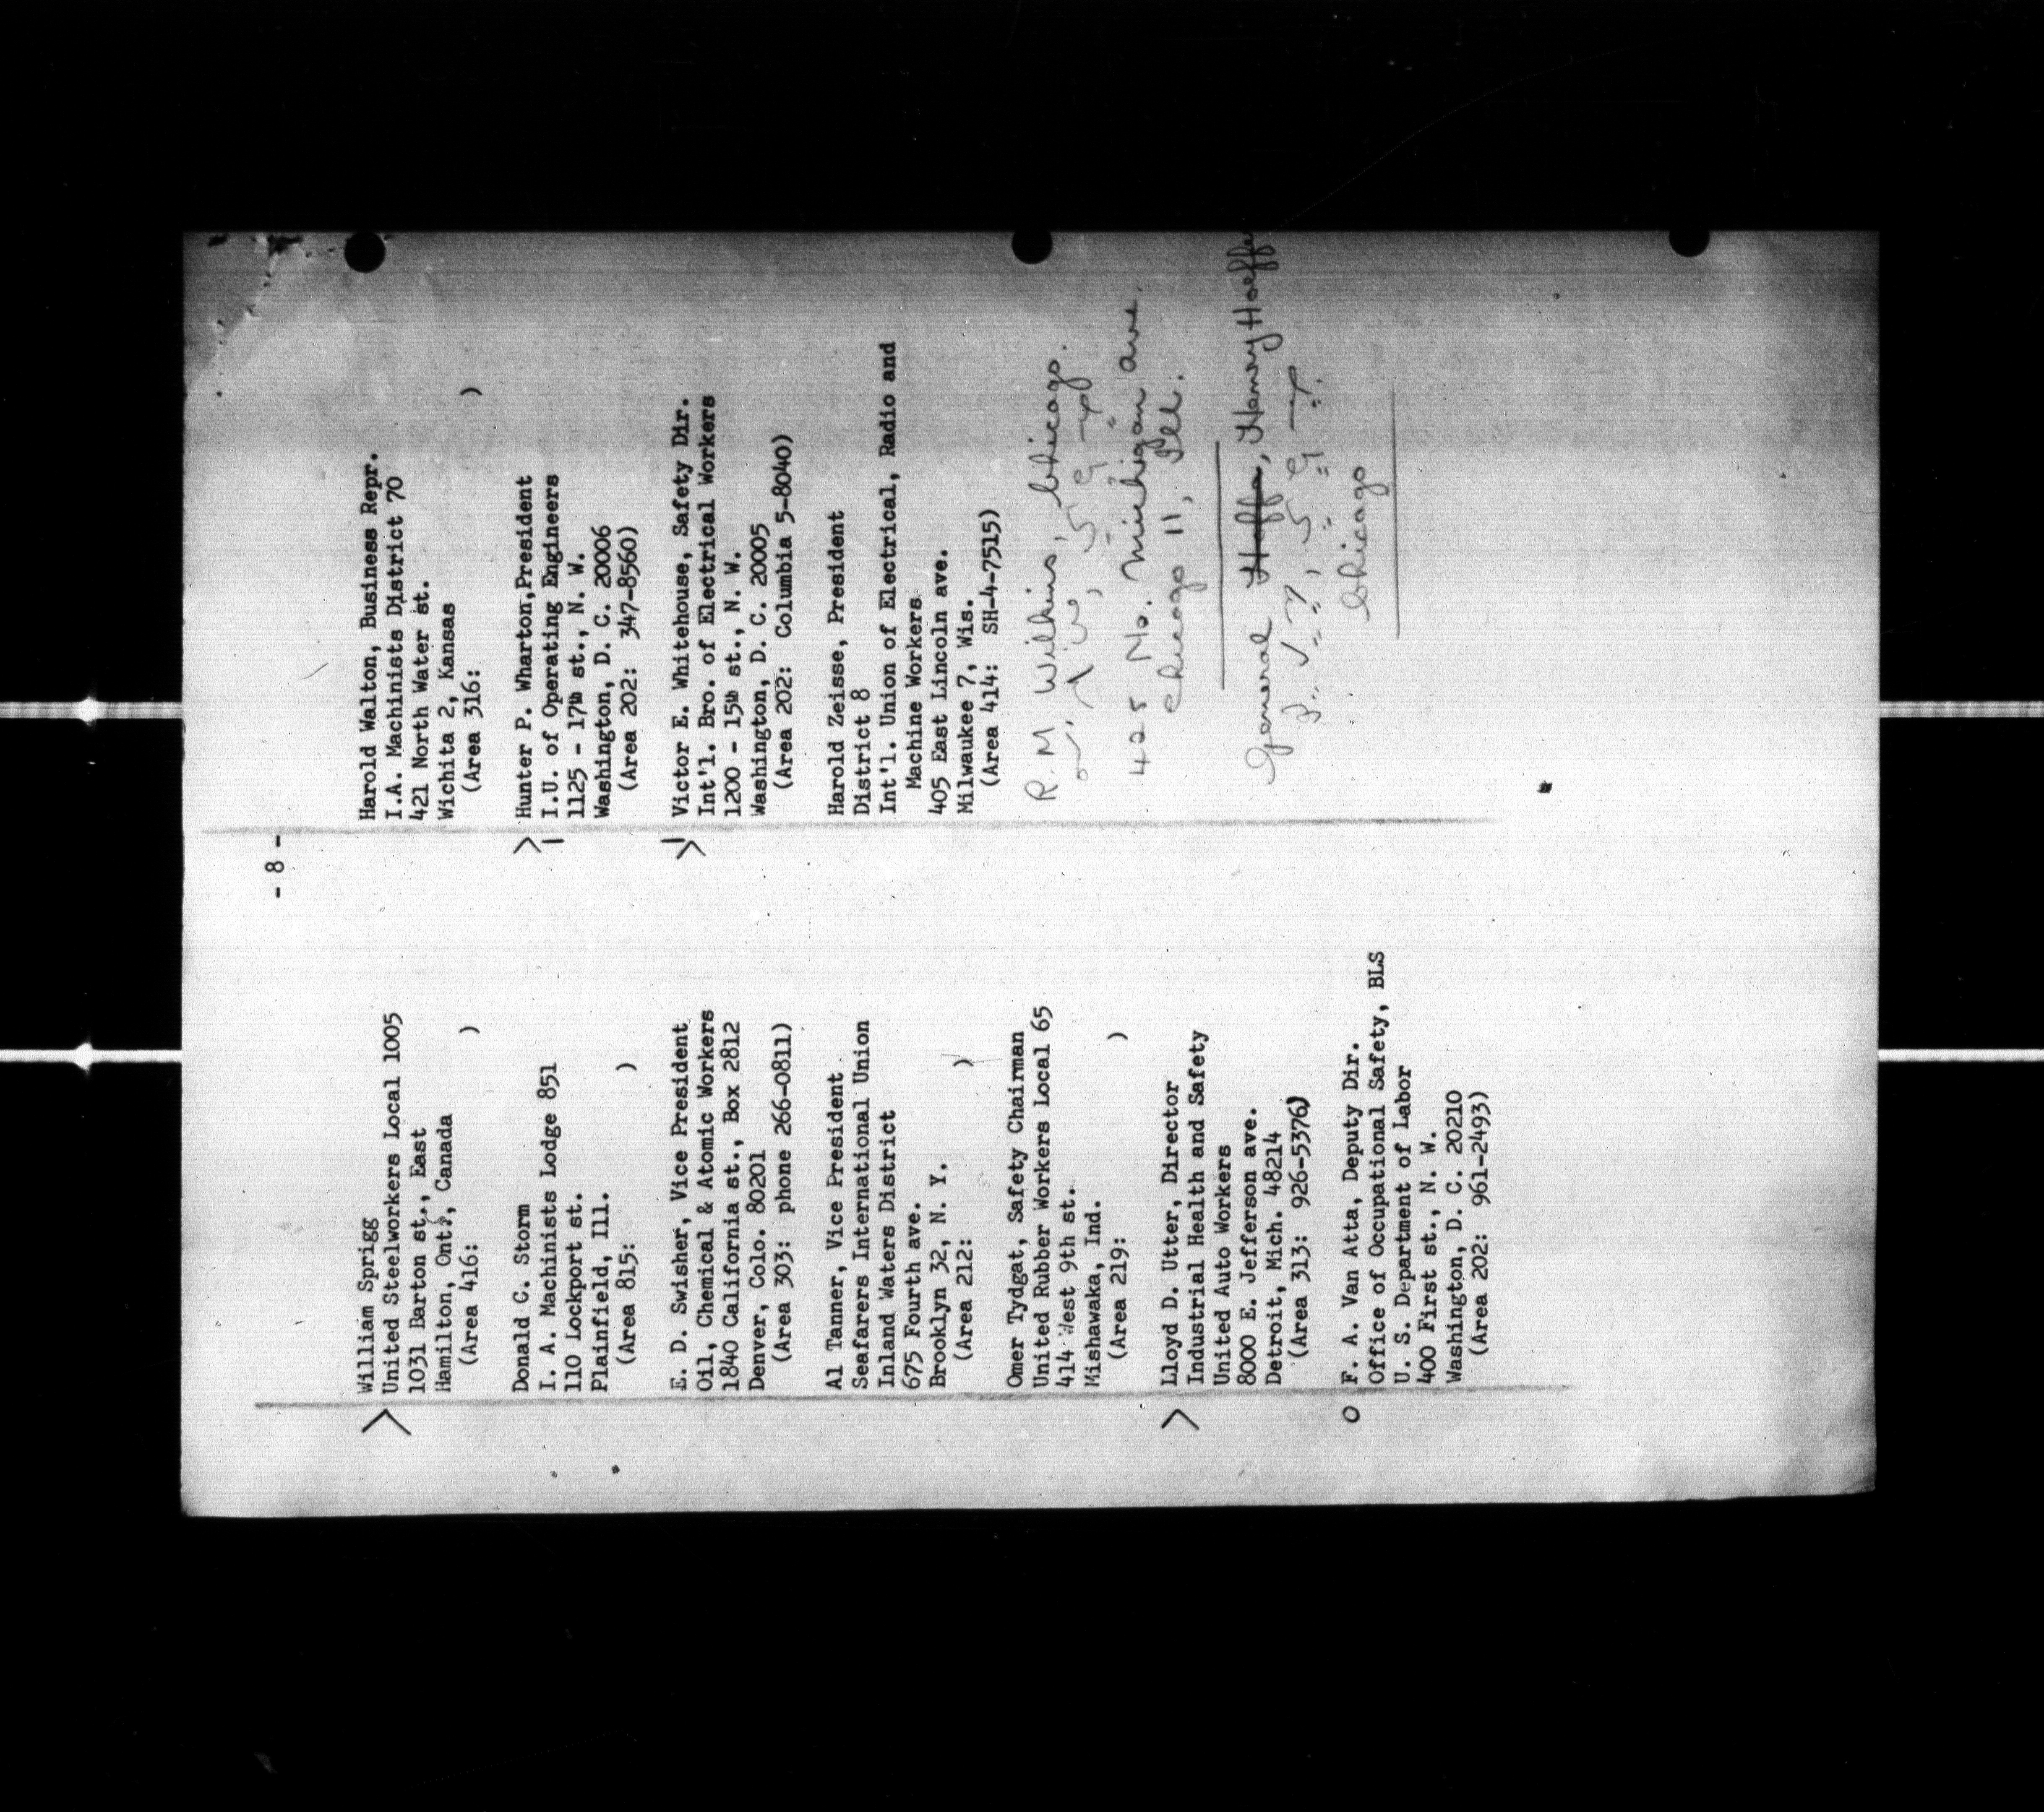 - 8 -
William Sprigg
United Steelworkers Local 1005
1031 Barton st., East
Hamilton, Ont., Canada
(Area 416:          )
Donald C. Storm
I. A. Machinists Lodge 851
110 Lockport st.
Plainfield, Ill.
(Area 815:          )
E. D. Swisher, Vice President
Oil, Chemical & Atomic Workers
1840 California st., Box 2812
Denver, Colo. 80201
(Area 303: phone 266-0811)
Al Tanner, Vice President
Seafarers International Union
Inland Waters District
675 Fourth ave.
Brooklyn 32, N. Y.
(Area 212:          )
Omer Tydgat, Safety Chairman
United Rubber Workers Local 65
414 West 9th st.
Mishawaka, Ind.
(Area 219:          )
Lloyd D. Utter, Director
Industrial Health and Safety
United Auto Workers
8000 E. Jefferson ave.
Detroit, Mich. 48214
(Area 313: 926-5376)
O F. A. Van Atta, Deputy Dir.
Office of Occupational Safety, BLS
U. S. Department of Labor
400 First st., N. W.
Washington, D. C. 20210
(Area 202: 961-2493)
Harold Walton, Business Repr.
I.A. Machinists District 70
421 North Water st.
Wichita 2, Kansas
(Area 316:          )
Hunter P. Wharton,President
I.U. of Operating Engineers
1125 - 17th st., N. W.
Washington, D. C. 20006
(Area 202: 347-8560)
Victor E. Whitehouse, Safety Dir.
Int'l. Bro. of Electrical Workers
1200 - 15th st., N. W.
Washington, D. C. 20005
(Area 202: Columbia 5-8040)
Harold Zeisse, President
District 8
Int'l. Union of Electrical, Radio and
Machine Workers
405 East Lincoln ave.
Milwaukee 7, Wis.
(Area 414: SH-4-7515)
R. M Wilkins, Chicago.
425 No. Michigan ave.
Chicago 11, Ill.
General Hoffa, Henry Hoeffe
Chicago